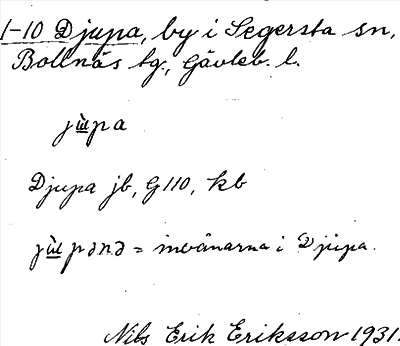 1-10 Djupa, by i Segersta sn,
Bollnäs tg., Gävleb. l.
jùpa
Djupa jb, G110, kb
jùpənə = invånarna i Djupa.
Nils Erik Eriksson 1931.